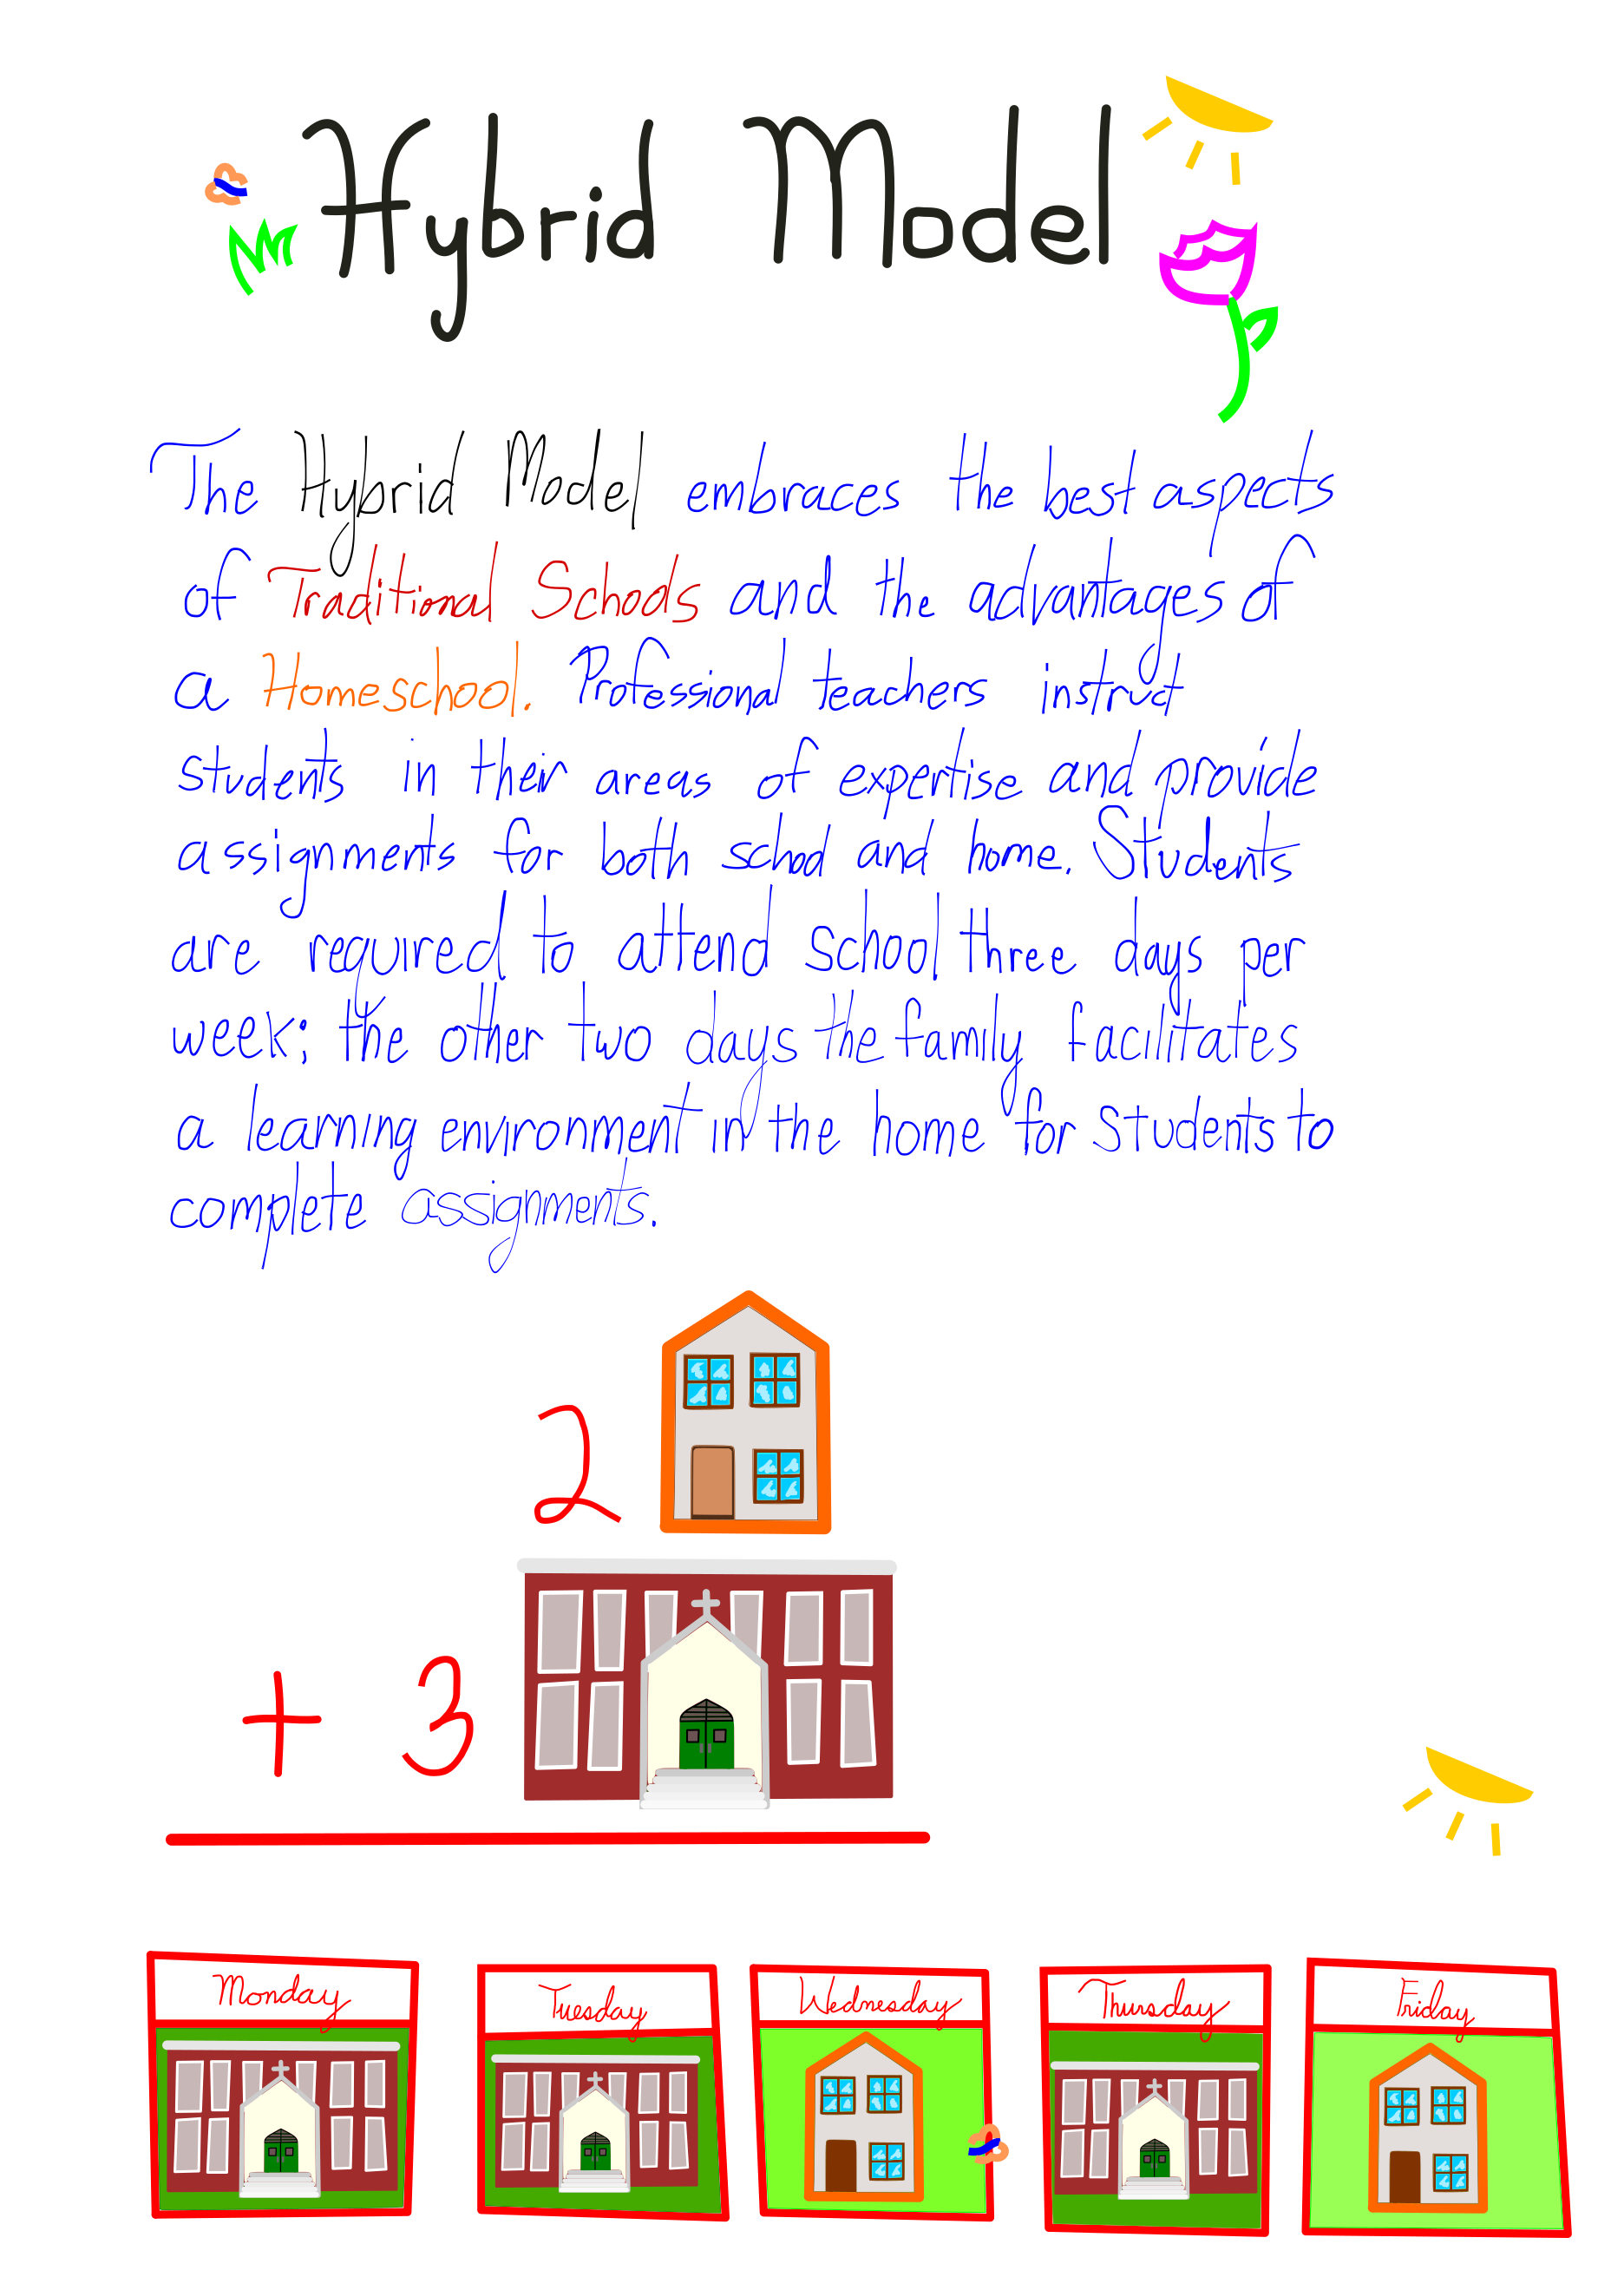 Hybrid Model
The Hybrid Model embraces the best aspects
of Traditional Schools and the advantages of
a Homeschool. Professional teachers instruct
students in their areas of expertise and provide
assignments for both school and home. Students
are required to attend school three days per
week; the other two days the family facilitates
a learning environment in the home for students to
complete assignments.
2
+ 3
Monday Tuesday Wednesday Thursday Friday